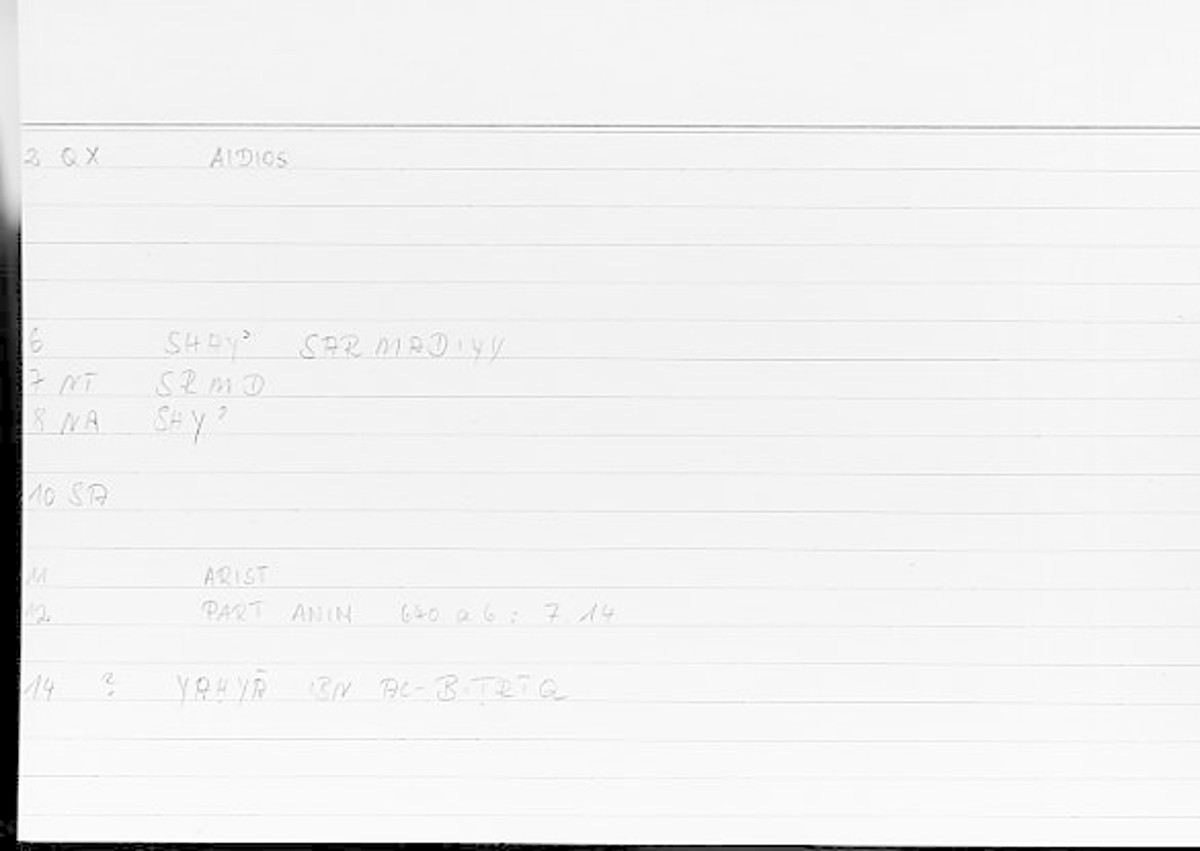 2 QX AIDIOS
6 SHAYʾ SARMADIYY
7 NT SRMD
8 NA SHYʾ
10 SA
11 ARIST
12 PART ANIM 640 a 6 : 7.14
14 ? YAḤYĀ IBN AL-BIṬRĪQ